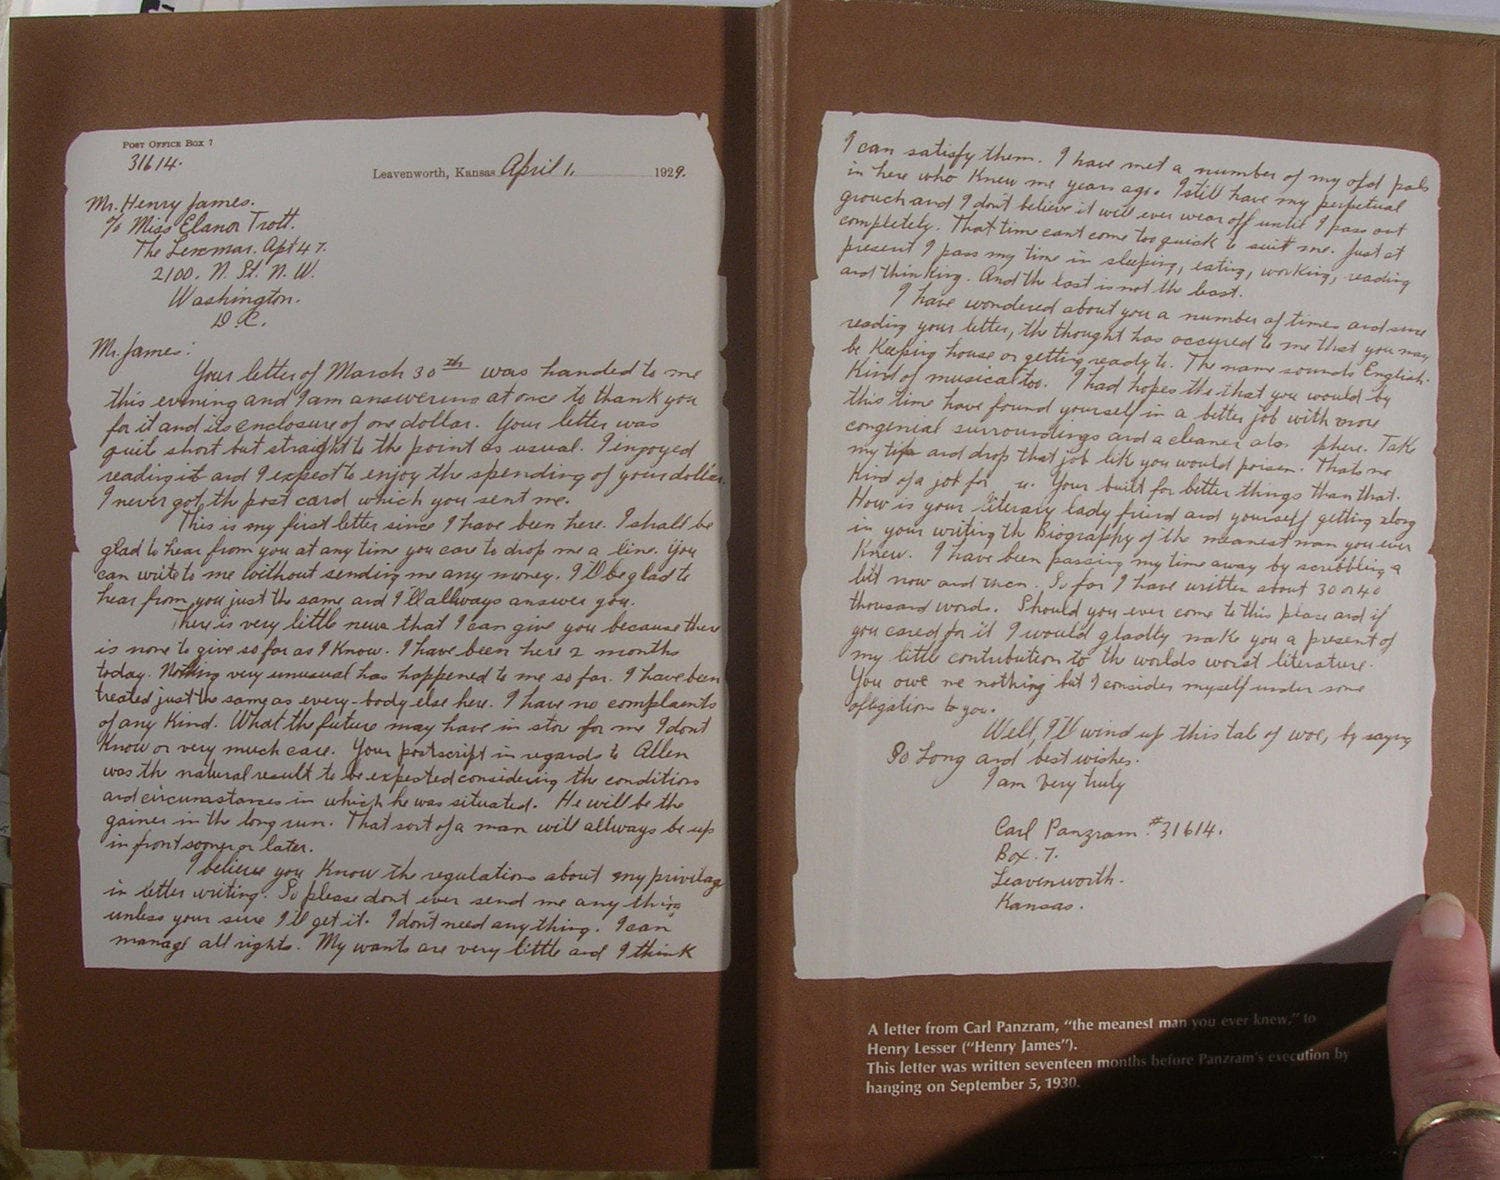 Post Office Box 7
31614.
Leavenworth, Kansas April 1, 1929.
Mr. Henry James.
c/o Miss Elanor Trott.
The Lenmar. Apt 47.
2100. N. St. N. W.
Washington.
D.C.
Mr. James:
Your letter of March 30th was handed to me
this evening and I am answering at once to thank you
for it and its enclosure of one dollar. Your letter was
quite short but straight to the point as usual. I injoyed
reading it and I expect to enjoy the spending of your dollar.
I never got the post card which you sent me.
This is my first letter since I have been here. I shall be
glad to hear from you at any time you care to drop me a line. You
can write to me without sending me any money. I'll be glad to
hear from you just the same and I'll allways answer you.
There is very little news that I can give you because there
is none to give so far as I know. I have been here 2 months
today. Nothing very unusual has happened to me so far. I have been
treated just the same as every-body else here. I have no complaints
of any kind. What the future may have in store for me I dont
know or very much care. Your postscript in regards to Allen
was the natural result to be expected considering the conditions
and circumstances in which he was situated. He will be the
gainer in the long run. That sort of a man will allways be up
in front sooner or later.
I believe you know the regulations about my privilage
in letter writing. So please dont ever send me any thing
unless your sure I'll get it. I dont need any thing. I can
manage all rights. My wants are very little and I think
I can satisfy them. I have met a number of my old pals
in here who knew me years ago. I still have my perpetual
grouch and I dont believe it will ever wear off until I pass out
completely. That time cant come too quick to suit me. Just at
present I pass my time in sleeping, eating, working, reading
and thinking. And the last is not the least.
I have wondered about you a number of times and since
reading your letter, the thought has occured to me that you may
be keeping house or getting ready to. The name sounds English.
Kind of musical too. I had hopes that you would by
this time have found yourself in a better job with more
congenial surroundings and a cleaner phere. Take
my tip and drop that job like you would poison. Thats no
kind of a job for u. Your built for better things than that.
How is your literary lady friend and yourself getting along
in your writing the Biography of the meanest man you ever
knew. I have been passing my time away by scribbling a
bit now and then. So far I have written about 30 or 40
thousand words. Should you ever come to this place and if
you cared for it I would gladly make you a present of
my little contribution to the worlds worst literature.
You owe me nothing but I consider myself under some
obligation to you.
Well, I'll wind up this tale of woe, by saying
So Long and best wishes.
I am Very truly
Carl Panzram #31614.
Box. 7.
Leavenworth.
Kansas.
A letter from Carl Panzram, “the meanest man you ever knew,” to
Henry Lesser (“Henry James”).
This letter was written seventeen months before Panzram's execution by
hanging on September 5, 1930.